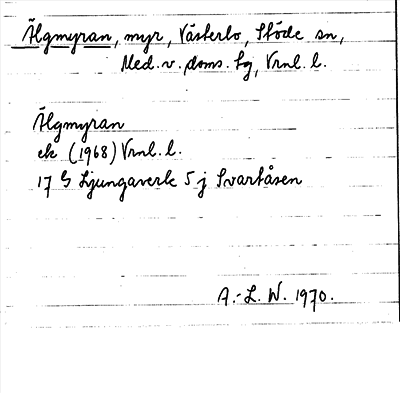 Älgmyran, myr, Västerlo, Stöde sn,
Med. v. doms. fg, Vrnl. l.
Älgmyran
ek (1968) Vrnl. l.
17 G Ljungaverk 5 j Svartåsen
A.-L. W. 1970.